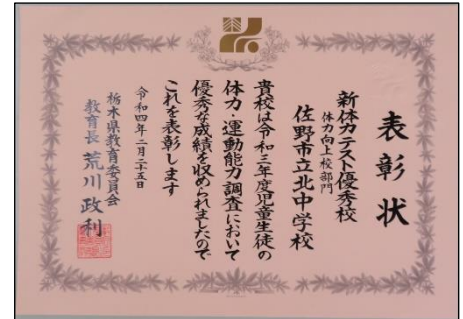 表彰状
新体力テスト優秀校
体力向上校部門
佐野市立北中学校
貴校は令和三年度児童生徒の
体力・運動能力調査において
優秀な成績を収められましたので
これを表彰します
令和四年二月二十五日
栃木県教育委員会
教育長 荒川政利